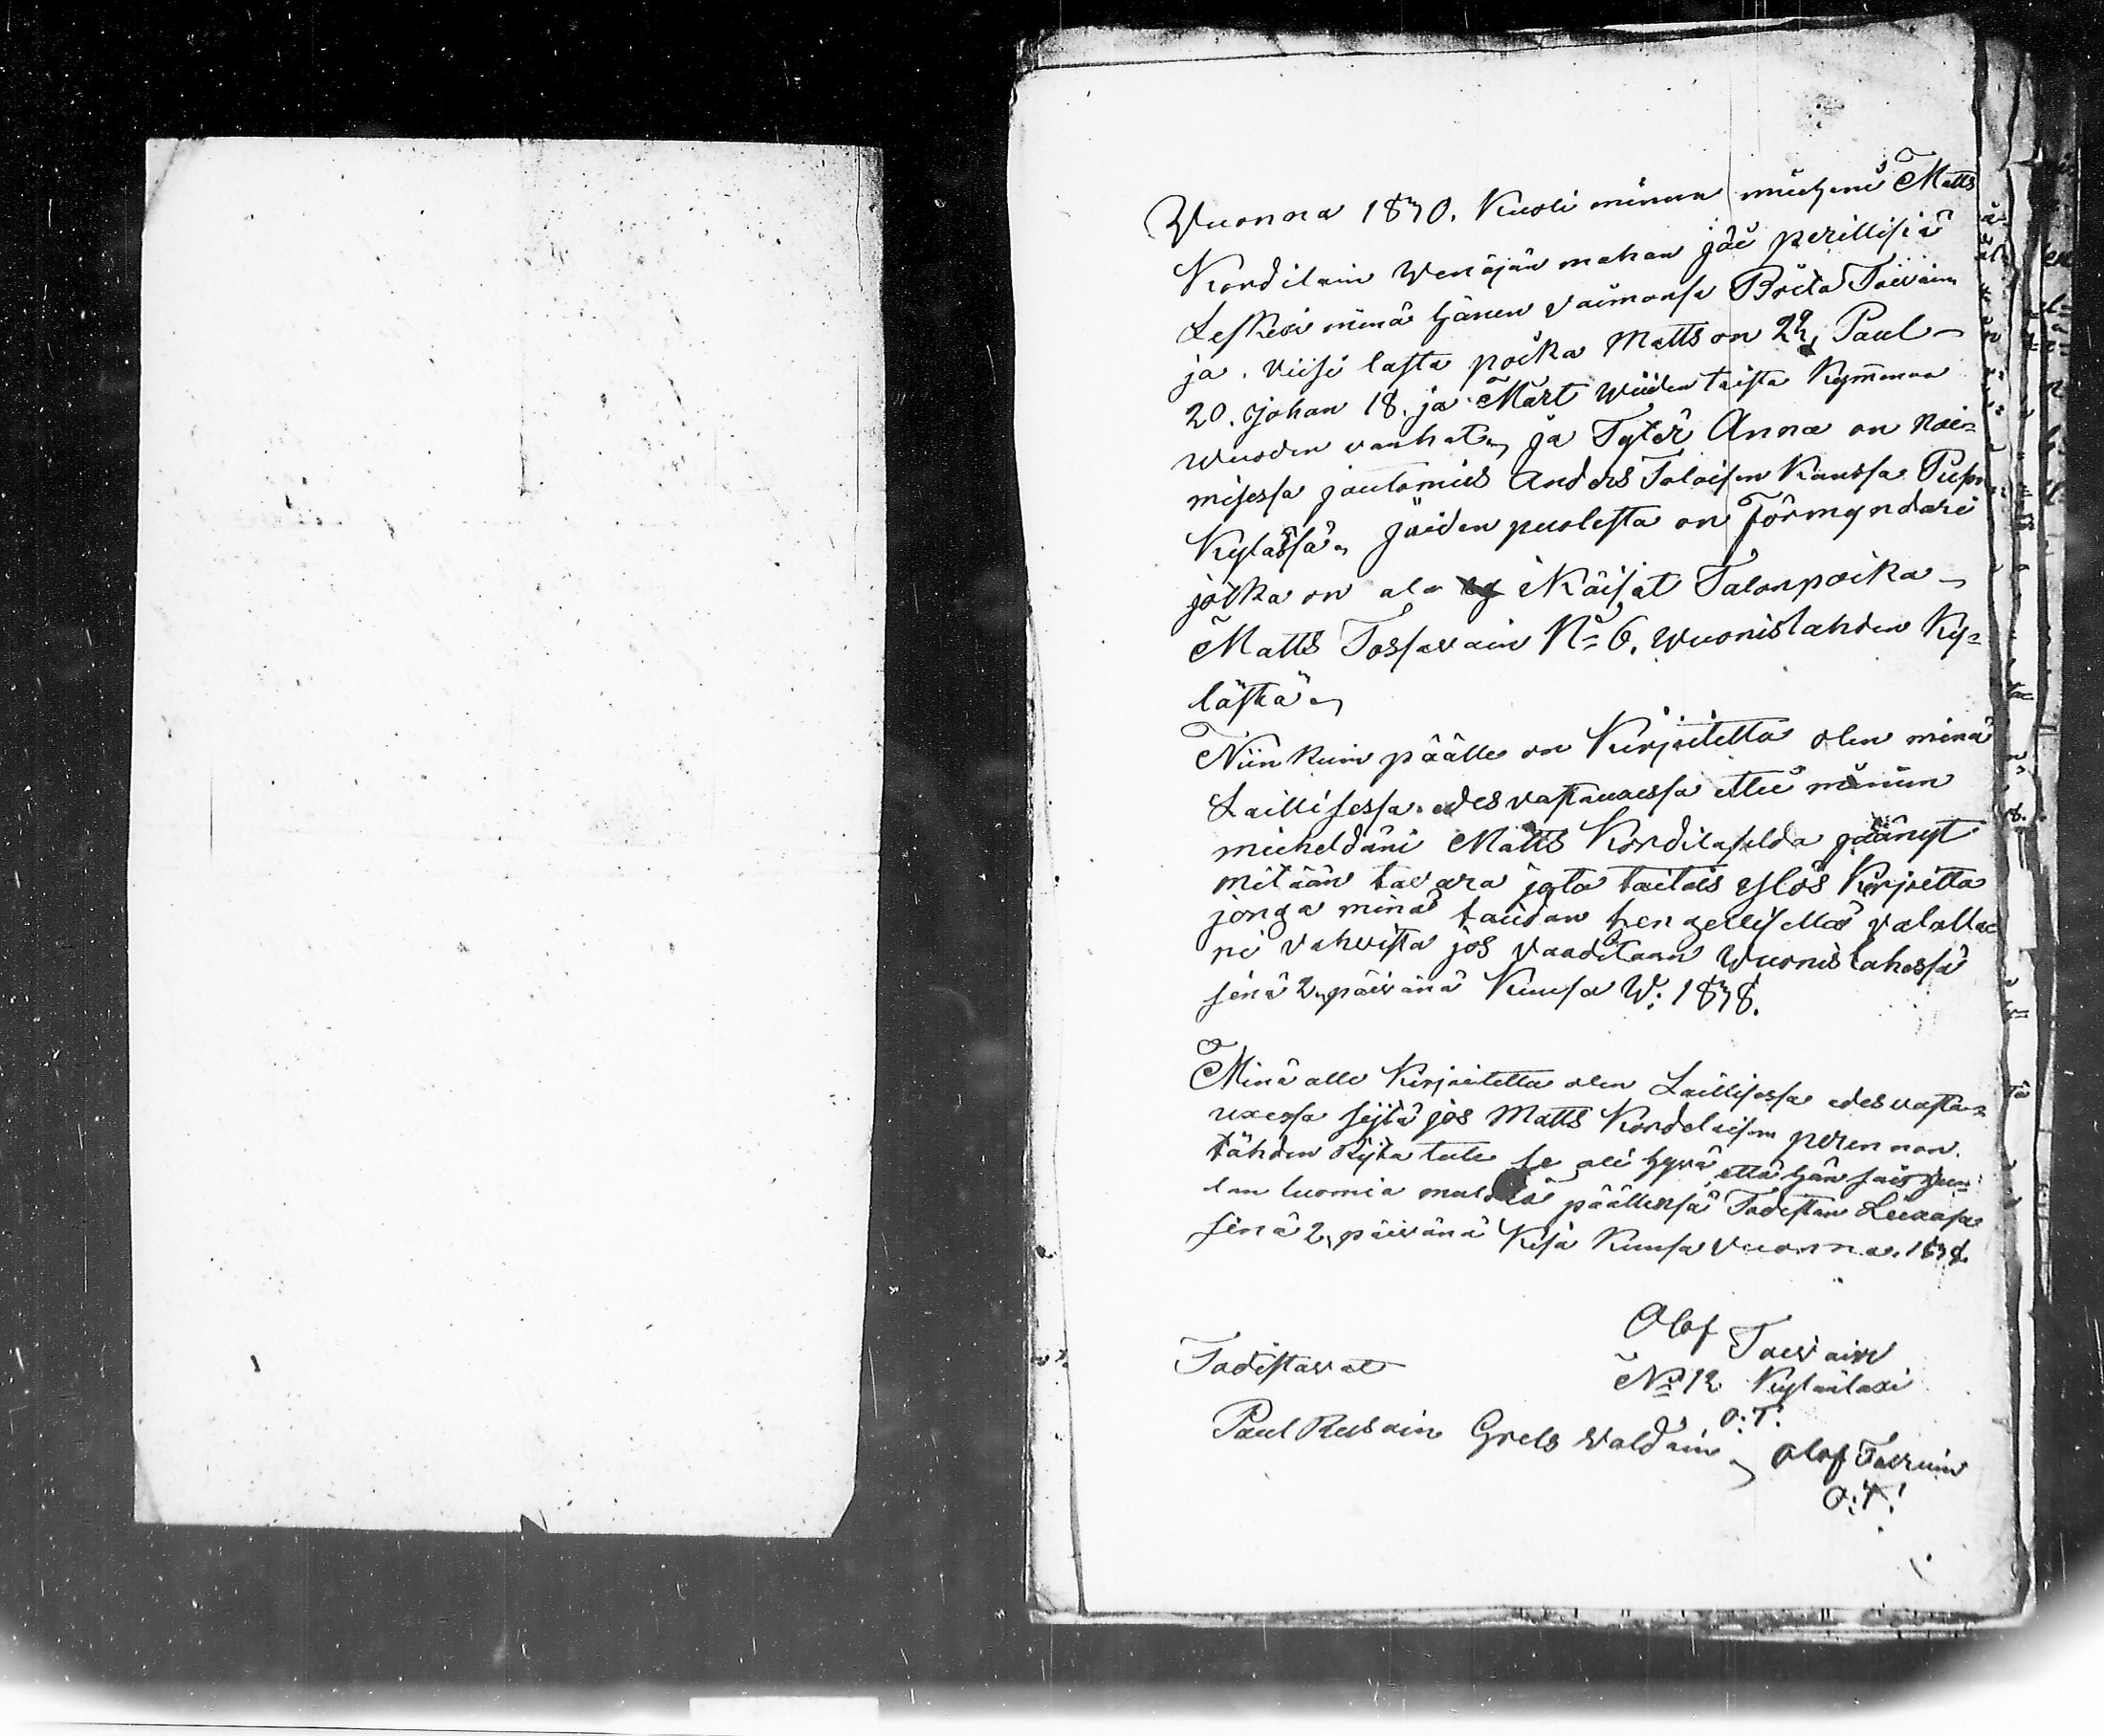 Wuonna 1870. Kuoli minun mieheni Matts
Kordilain Wenäjän mahan jäi perillisiä
Leskexi minä hänen vaimonsa Brita Toivain
ja. viisi lasta poika Matts on 22, Paul
20. Johan 18. ja Mårt Wiiden taista Kymmenen
wuoden vanhat, ja Tytär Anna on nai=
misessa joutomies Anders Toloisen Kanssa
Kylässä, Joiden puolesta on Förmyndäri
jotka on ala ikäiset Talonpoika
Matts Tossavain No 6. Wuonislahden Ky=
lästä,
Niinkuin päälle on Kirjoitettu olen minä
Laillisessa edesvastauxessa ettei minun
mieheldäni Matts Kordilaiselda jäänyt
mitään tavara jota taitais ylös Kirjoitta
jonga minä taidan hengellisellä valalla
ni vahvista jos vaaditaan Wuonislahessa
senä 2, päivänä Kuusa W: 1878.
Minä alle Kirjoitettu olen Laillisessa edesvasta=
uxessa siitä jos Matts Kordelaisen perennon
tähden Kyta tule se oli hyvä että hän sais Ju=
lan luomia muldia päällensä Todistan Liexasa
senä 2, päivänä Kesä Kuusa Vuonna. 1878.
Olof Toivain
No 12 Kylänlaxi
O:T:
Todistavat
Paul Resoin Grels Waldain, Olof Toivain
O:T: